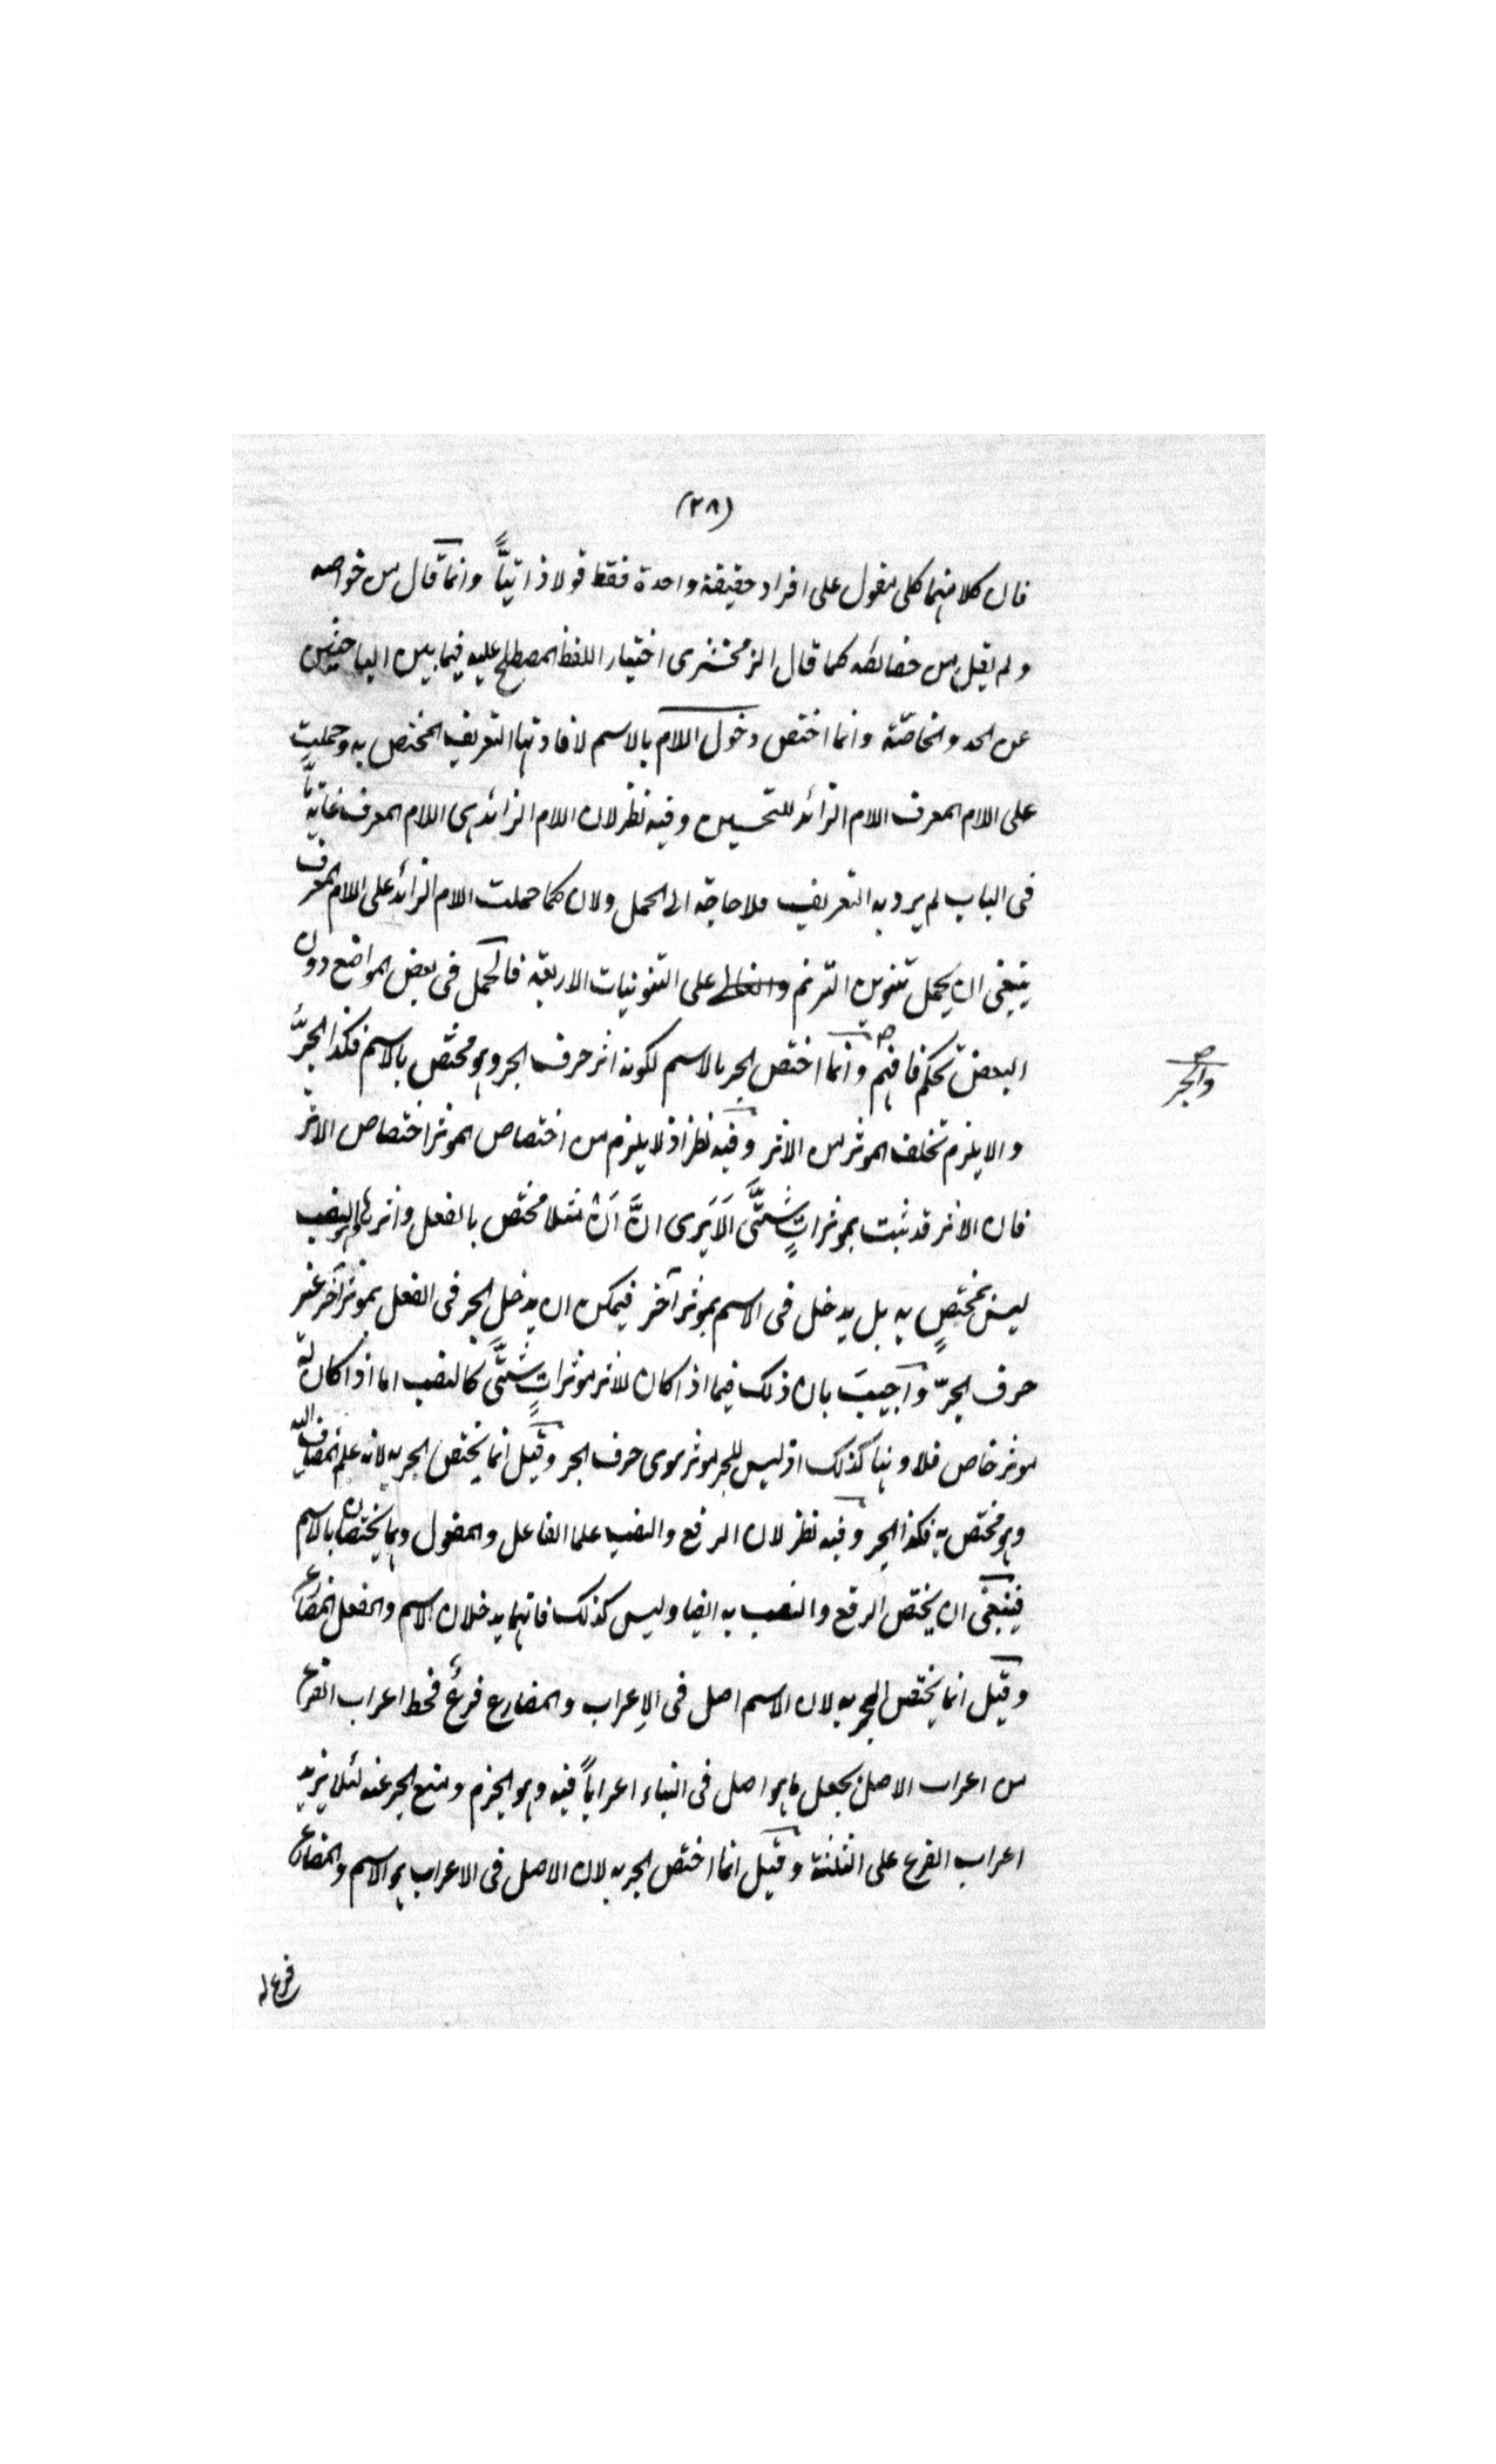 (٢٨)
فان كلا منهما كلى مقول على افراد حقيقة واحدة فقط قولا ذاتيًّا وانما قال من خواصه
ولم يقل من خصائصه كما قال الزمخشرى اختيار اللفظ المصطلح عليه فيما بين الباحثين
عن الحد والخاصّة وانما اختص دخول اللام بالاسم لافادتها التعريف المختص به وحملت
على اللام المعرف اللام الزائد للتحسين وفيه نظر لان اللام الزائد هى اللام المعرف غايته
فى الباب لم يرد به التعريف فلا حاجة الى الحمل ولان كما حملت اللام الزائد على اللام المعرف
ينبغى ان يحمل تنوين الترنم على التنوينات الاربعة فالحمل فى بعض المواضع دون
البعض تحكم فافهم وانما اختص الجر بالاسم لكونه اثر حرف الجر وهو مختص بالاسم فكذا الجرّ
والا يلزم تخلف الموثر من الاثر وفيه نظر اذ لا يلزم من اختصاص الموثر اختصاص الاثر
فان الاثر قد ثبت بموثراتٍ شتَّى الَا يَرى انَّ اَنْ مثلا مختص بالفعل واثرها وهو النصب
ليس بمختصٍ به بل يدخل فى الاسم بموثر آخر فيمكن ان يدخل الجر فى الفعل بموثر آخر غير
حرف الجرّ واجيبَ بان ذلك فيما اذا كان للاثر موثراتٍ شتَّى كالنصب اما اذا كان له
موثر خاص فلا وههنا كذلك اذ ليس للجر موثر سوى حرف الجر وقيل انما يختص الجر به لانه علم المضاف اليه
وهو مختص به فكذا الجر وفيه نظر لان الرفع والنصب علما الفاعل والمفعول وهما يختصان بالاسم
فينبغى ان يختص الرفع والنصب به ايضا وليس كذلك فانهما يدخلان الاسم والفعل المضارع
وقيل انما يختص الجر به لان الاسم اصل فى الاعراب والمضارع فرعٌ فحط اعراب الفرع
من اعراب الاصل بجعل ما هو اصل فى البناء اعراباً فيه وهو الجزم ومنع الجر عنه لئلا يزيد
اعراب الفرع على الثلثة وقيل انما اختص الجر به لان الاصل فى الاعراب هو الاسم والمضارع
فرع له
والجر